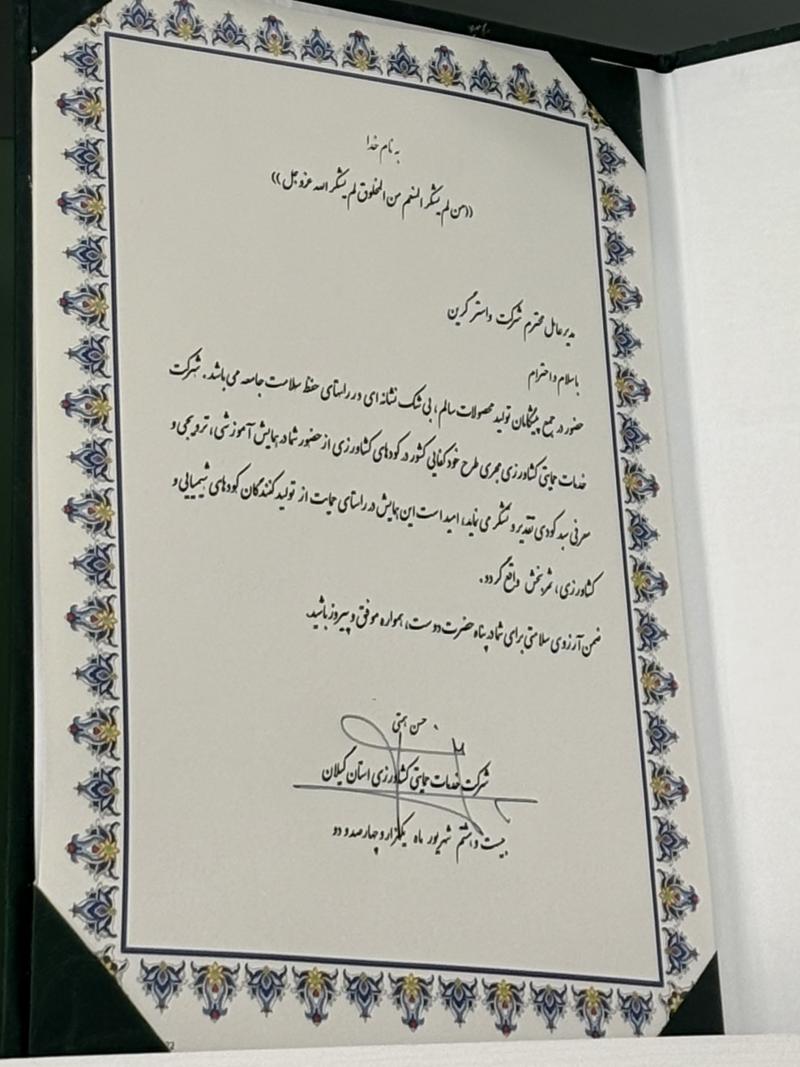 به نام خدا
((من لم یشکر المنعم من المخلوق لم یشکر الله عزوجل))
مدیر عامل محترم شرکت واستر گرین
باسلام و احترام
حضور در جمع پیشگامان تولید محصولات سالم، بی شک نشانه ای در راستای حفظ سلامت جامعه می باشد. شرکت
خدمات حمایتی کشاورزی مجری طرح خودکفایی کشور در کودهای کشاورزی از حضور شما در همایش آموزشی، ترویجی و
معرفی سبد کودی تقدیر و تشکر می نماید، امید است این همایش در راستای حمایت از تولید کنندگان کودهای شیمیایی و
کشاورزی، ثمربخش واقع گردد.
ضمن آرزوی سلامتی برای شما در پناه حضرت دوست، همواره موفق و پیروز باشید.
حسن همتی
شرکت خدمات حمایتی کشاورزی استان گیلان
بیست و هشتم شهریور ماه یکهزار و چهارصد و دو